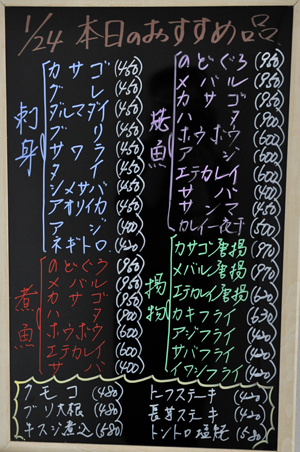 1/24 本日のおすすめ品
刺身
カサゴ (450)
グレ (450)
ダルマダイ (450)
ブリ (450)
サワラ (450)
タイ (450)
シメサバ (450)
アオリイカ (450)
アジ (400)
ネギトロ (420)
煮魚
のどぐろ (950)
メバル (950)
カサゴ (950)
ハタ (900)
ホウボウ (600)
エテカレイ (600)
サバ (400)
焼魚
のどぐろ (950)
メバル (950)
カサゴ (950)
ハタ (900)
ホウボウ (600)
アジ (500)
エテカレイ (600)
サバ (400)
サンマ (450)
カレイ一夜干 (500)
揚物
カサゴ唐揚 (970)
メバル唐揚 (970)
エテカレイ唐揚 (620)
カキフライ (630)
アジフライ (420)
サバフライ (420)
イワシフライ (420)
クモコ (480)
ブリ大根 (480)
牛スジ煮込 (580)
トーフステーキ (420)
長芋ステーキ (420)
トントロ塩焼 (580)